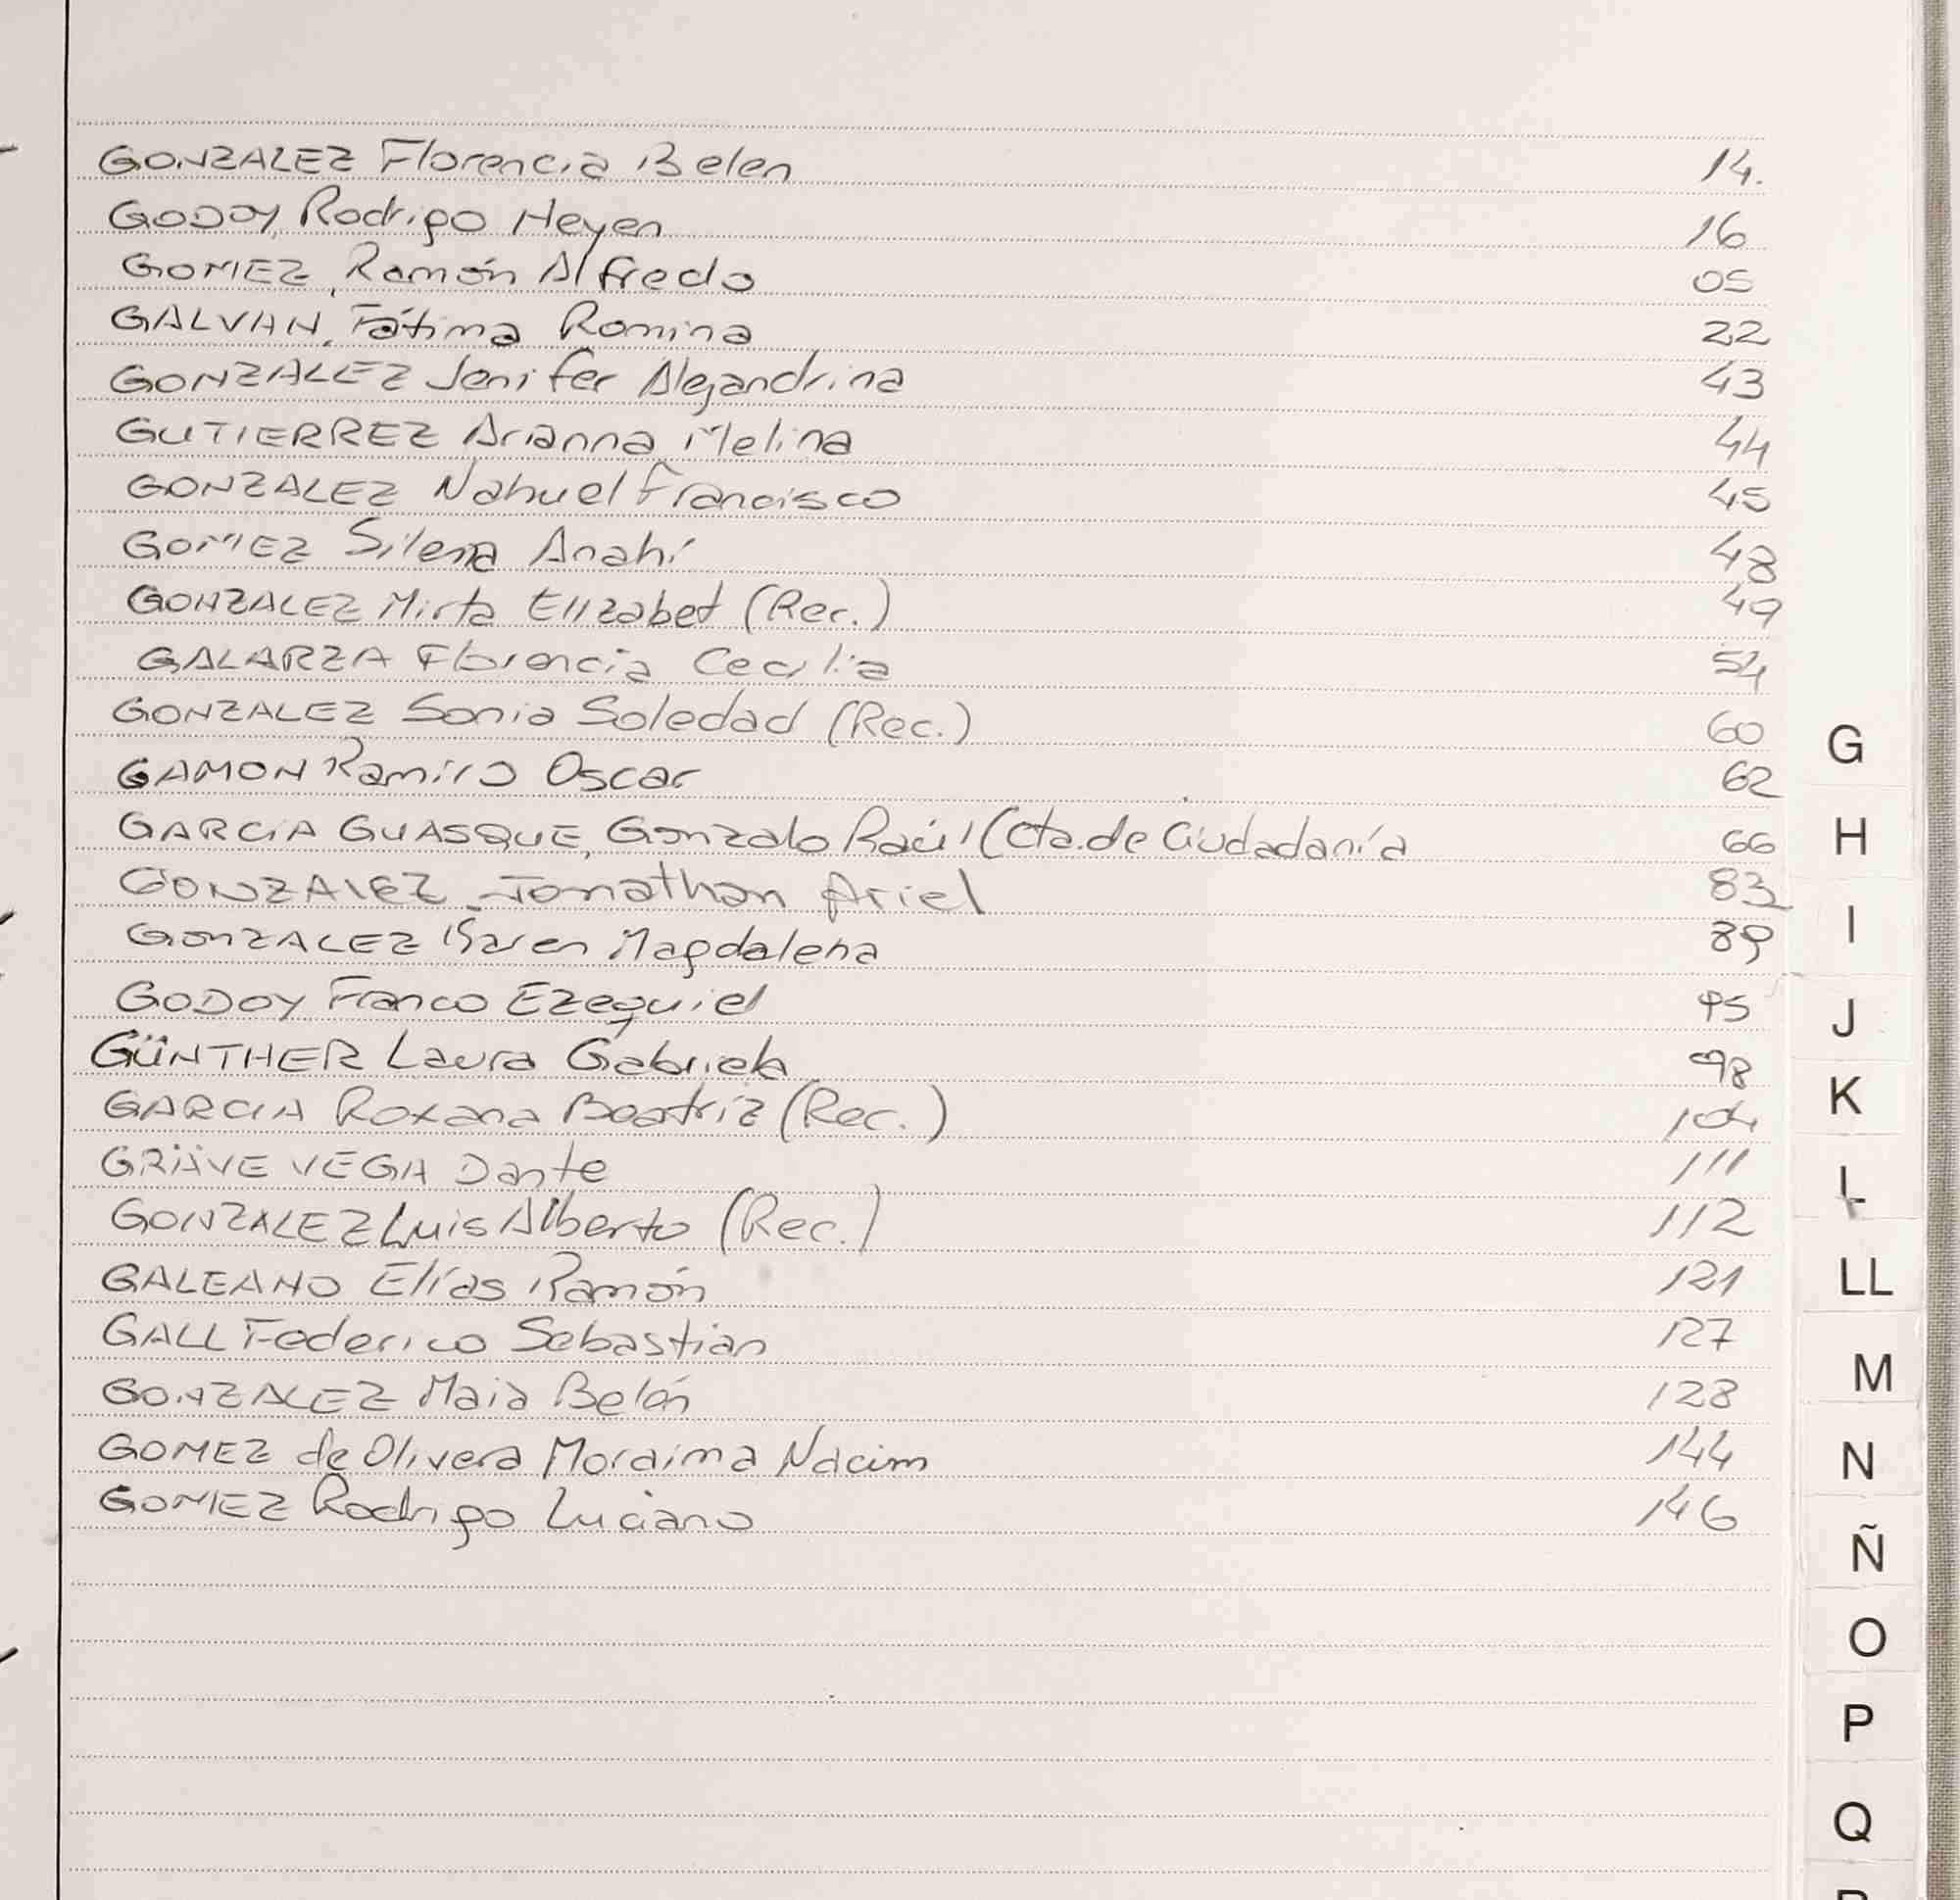 GONZALEZ Florencia Belen 14.
GODOY, Rodrigo Heyen 16
GOMEZ, Ramón Alfredo 05
GALVAN, Fátima Romina 22
GONZALEZ Jenifer Alejandrina 43
GUTIERREZ Arianna Melina 44
GONZALEZ Nahuel Francisco 45
GOMEZ Silena Anahí 48
GONZALEZ Mirta Elizabet (Rec.) 49
GALARZA Florencia Cecilia 54
GONZALEZ Sonia Soledad (Rec.) 60
GAMON Ramiro Oscar 62
GARCIA GUASQUE, Gonzalo Raúl (Cta. de Ciudadanía 66
GONZALEZ Jonathan Ariel 83
GONZALEZ Karen Magdalena 89
GODOY Franco Ezequiel 95
GÜNTHER Laura Gabriela 98
GARCIA Roxana Beatriz (Rec.) 104
GRÄVE VEGA Dante 111
GONZALEZ Luis Alberto (Rec.) 112
GALEANO Elías Ramón 121
GALL Federico Sebastian 127
GONZALEZ Maia Belén 128
GOMEZ de Olivera Moraima Nacim 144
GOMEZ Rodrigo Luciano 146
G
H
I
J
K
L
LL
M
N
Ñ
O
P
Q